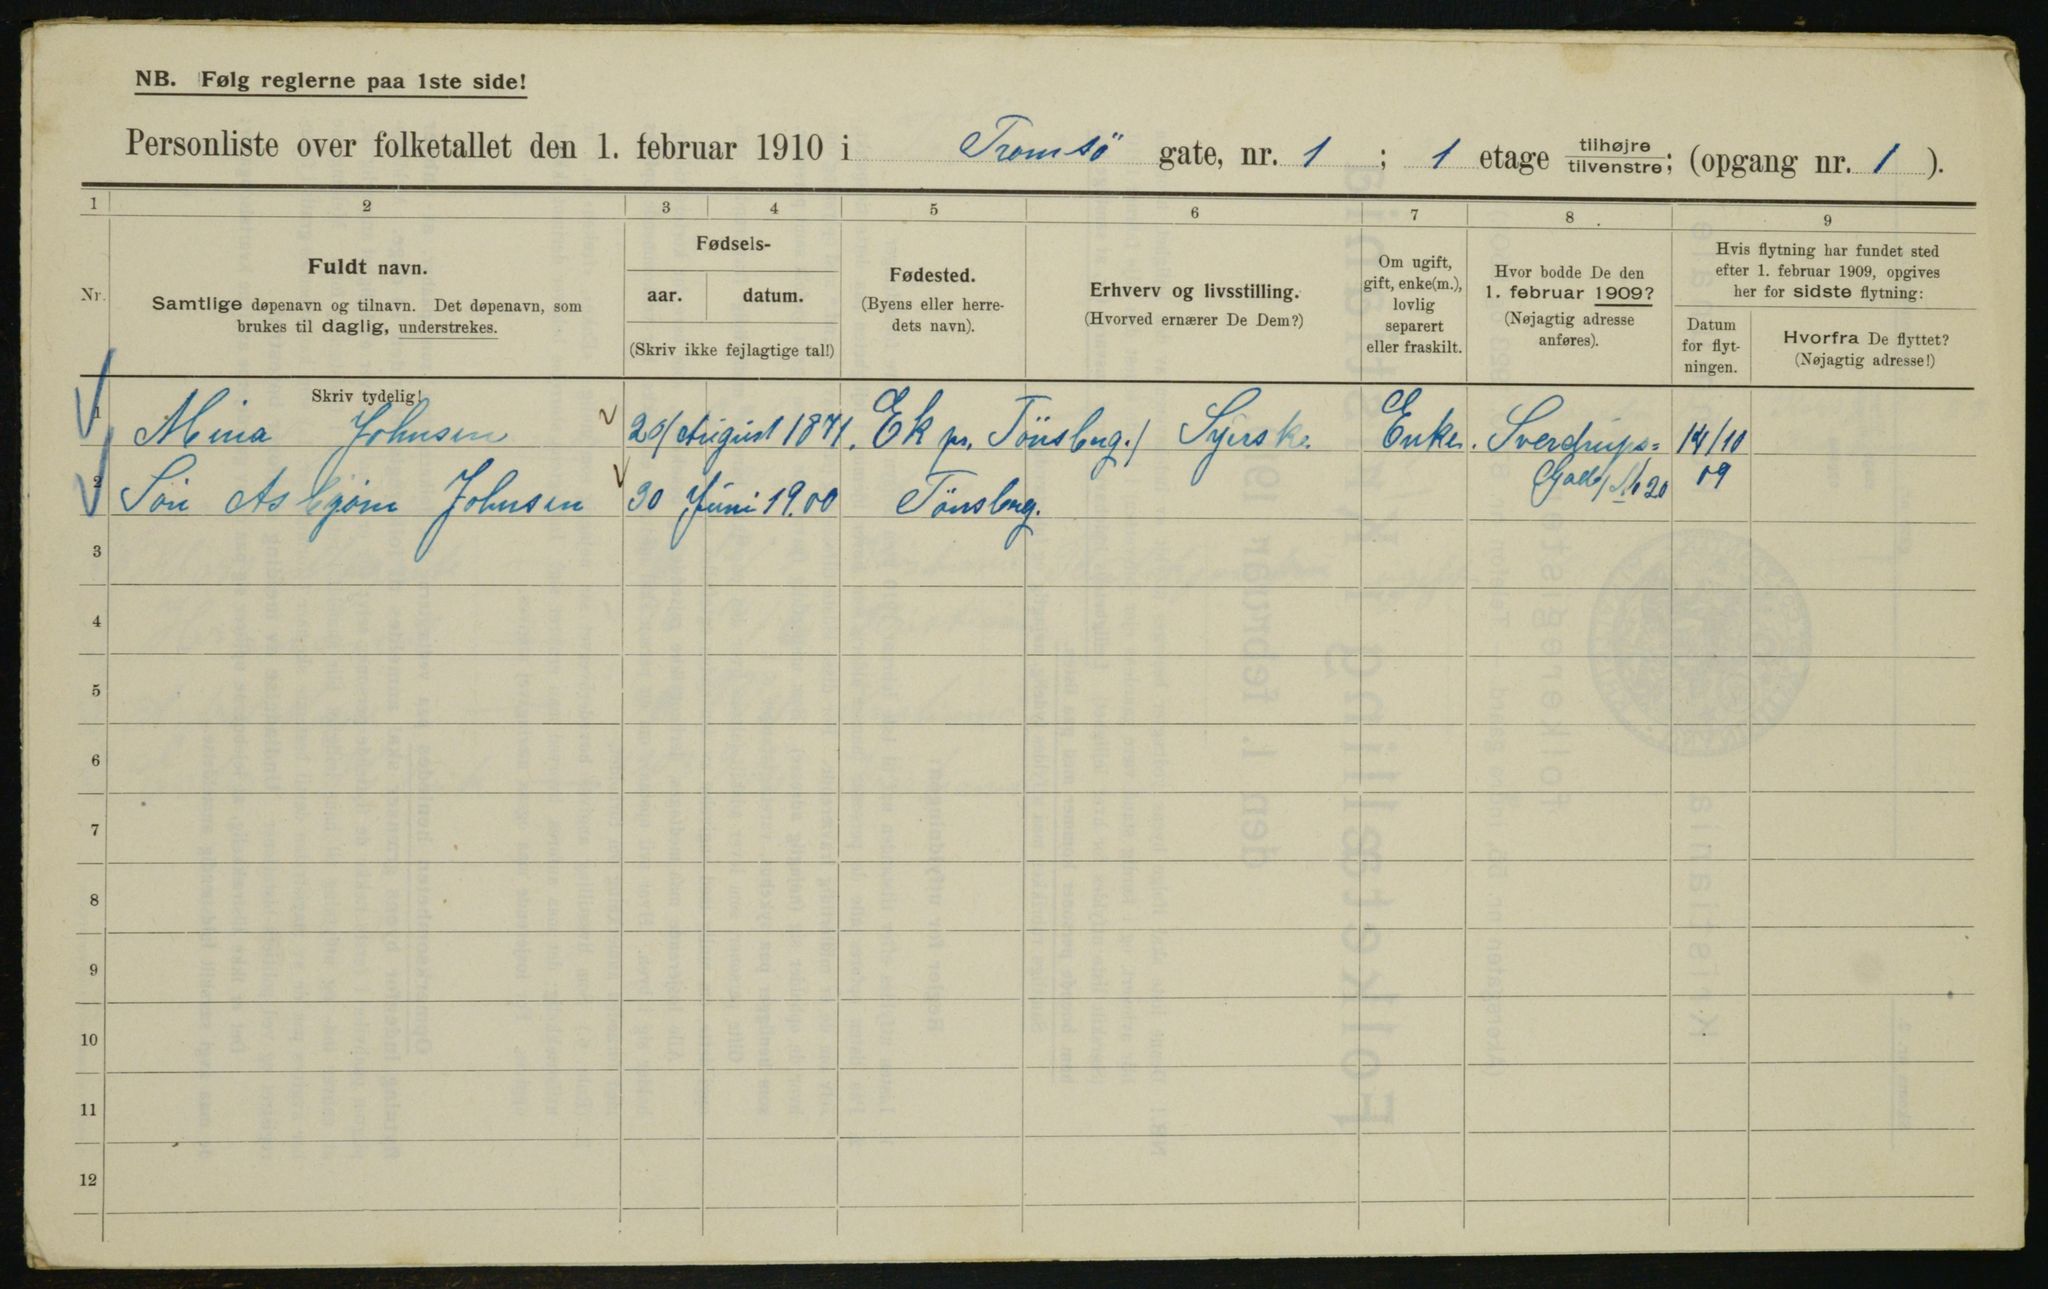 NB. Følg reglerne paa 1ste side!
Personliste over folketallet den 1. februar 1910 i Tromsö gate, nr. 1 ; 1 etage tilhøjre tilvenstre; (opgang nr. 1 ).
1 2 3 4 5 6 7 8 9
Nr.
Fuldt navn.
Samtlige døpenavn og tilnavn. Det døpenavn, som
brukes til daglig, understrekes.
Skriv tydelig!
Fødsels-
aar. datum.
(Skriv ikke fejlagtige tal!)
Fødested.
(Byens eller herre-
dets navn).
Erhverv og livsstilling.
(Hvorved ernærer De Dem?)
Om ugift,
gift, enke(m.),
lovlig
separert
eller fraskilt.
Hvor bodde De den
1. februar 1909?
(Nøjagtig adresse
anføres).
Hvis flytning har fundet sted
efter 1. februar 1909, opgives
her for sidste flytning:
Datum
for flyt-
ningen.
Hvorfra De flyttet?
(Nøjagtig adresse!)
1 Mina Johnsen 20/August 1871. Ek pr. Tönsberg./ Syerske. Enke. Sverdrups= 14/10
Gade/ No 20 09
2 Sön Asbjörn Johnsen 30 Juni 19.00 Tönsberg.
3
4
5
6
7
8
9
10
11
12